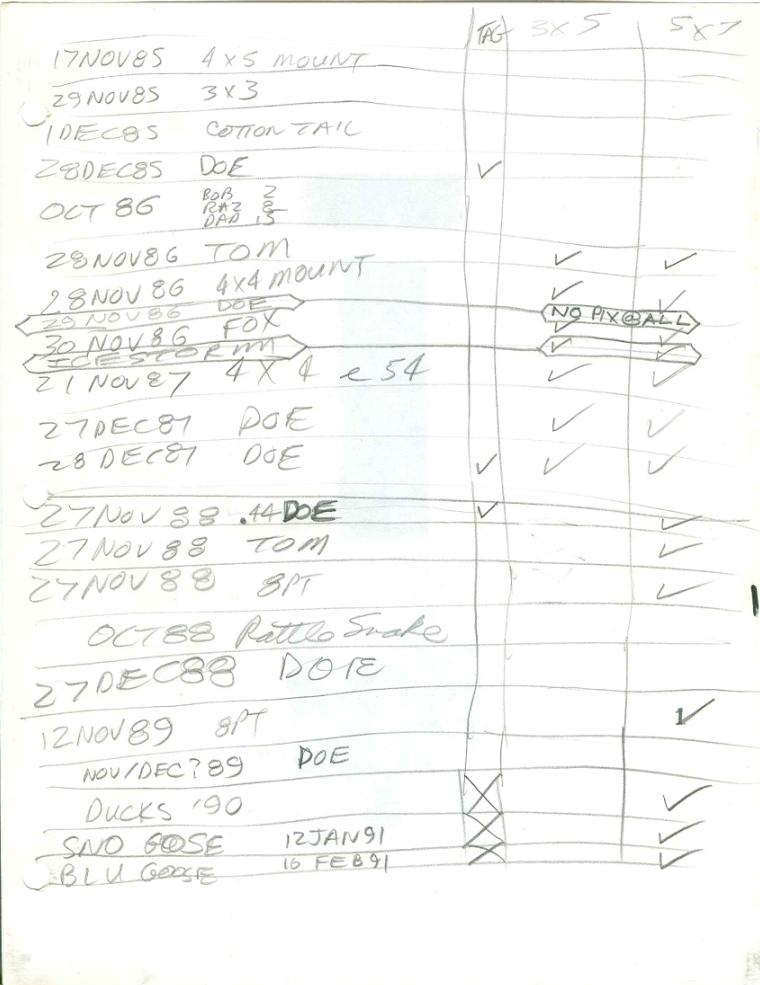 TAG 3X5 5X7
17NOV85 4X5 MOUNT
29NOV85 3X3
1DEC85 COTTONTAIL
28DEC85 DOE ✓
OCT 86 BOB 2
RAZ 8
DAD 15
28NOV86 TOM ✓ ✓
28NOV86 4X4 MOUNT ✓ ✓
29NOV86 DOE NO PIX@ALL
30 NOV86 FOX ✓ ✓
ICESTORM ✓ ✓
21NOV87 4X4 e 54 ✓ ✓
27DEC87 DOE ✓ ✓
28DEC87 DOE ✓ ✓ ✓
27NOV88 .44 DOE ✓ ✓
27NOV88 TOM ✓
27NOV88 8PT ✓
OCT88 Rattle Snake
27DEC88 DOE
12NOV89 8PT ✓
NOV/DEC?89 DOE
DUCKS '90 X ✓
SNO GOOSE 12JAN91 X ✓
BLU GOOSE 16 FEB91 X ✓